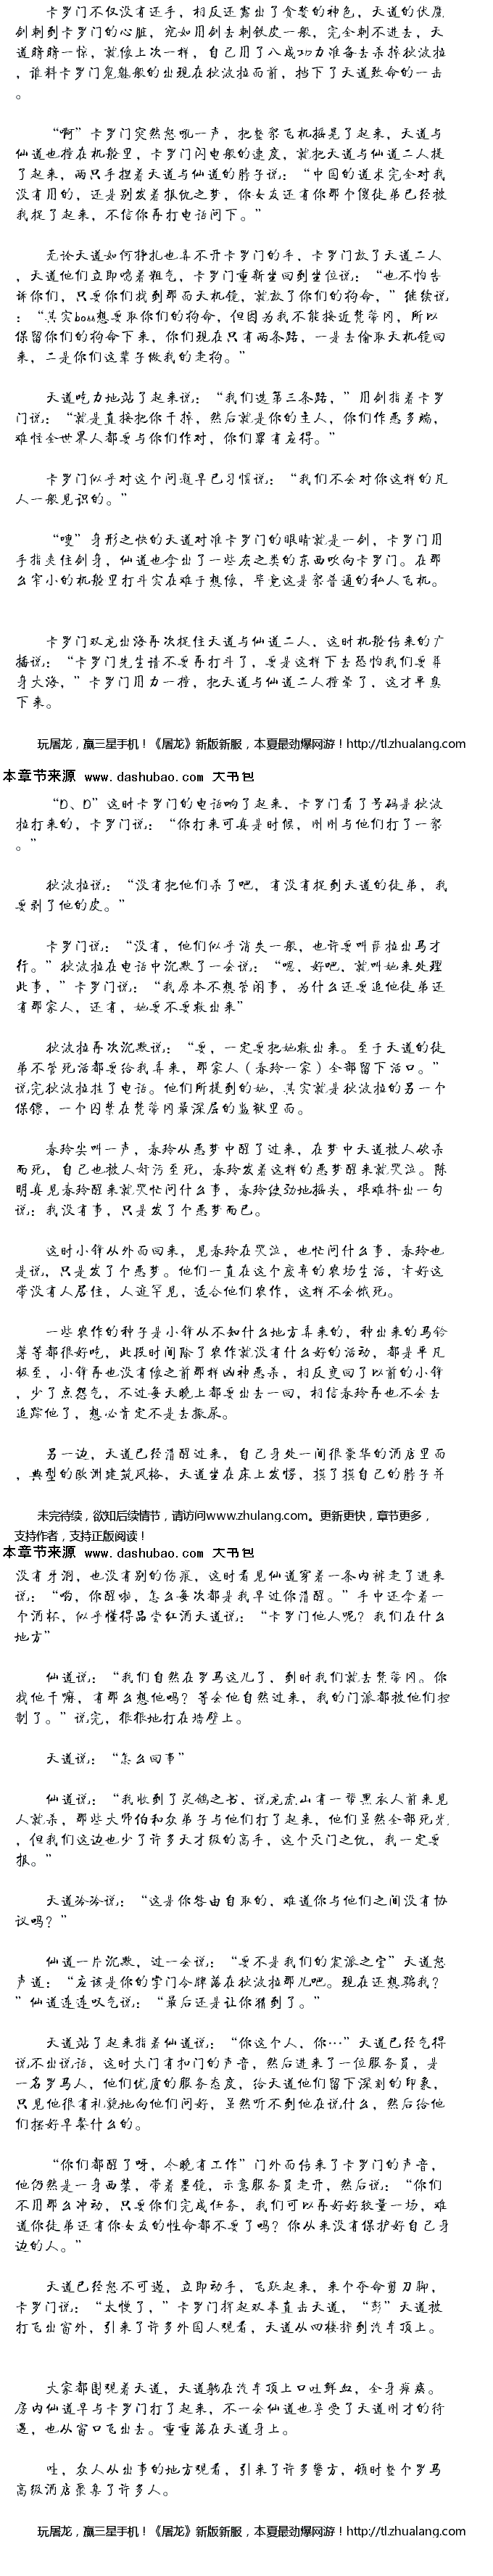 卡罗门不仅没有还手，相反还露出了贪婪的神色，天道的伏魔
剑刺到卡罗门的心脏，宛如用剑去刺铁皮一般，完全刺不进去，天
道暗暗一惊，就像上次一样，自己用了八成功力准备去杀掉狄波拉
，谁料卡罗门鬼魅般的出现在狄波拉面前，挡下了天道致命的一击
。
“啊”卡罗门突然怒吼一声，把整架飞机摇晃了起来，天道与
仙道也撞在机舱里，卡罗门闪电般的速度，就把天道与仙道二人提
了起来，两只手捏着天道与仙道的脖子说：“中国的道术完全对我
没有用的，还是别发着报仇之梦，你女友还有你那个傻徒弟已经被
我捉了起来，不信你再打电话问下。”
无论天道如何挣扎也弄不开卡罗门的手，卡罗门放了天道二人
，天道他们立即喘着粗气，卡罗门重新坐回到坐位说：“也不怕告
诉你们，只要你们找到那面天机镜，就放了你们的狗命，”继续说
：“其实boss想要取你们的狗命，但因为我不能接近梵蒂冈，所以
保留你们的狗命下来，你们现在只有两条路，一是去偷取天机镜回
来，二是你们这辈子做我的走狗。”
天道吃力地站了起来说：“我们选第三条路，”用剑指着卡罗
门说：“就是直接把你干掉，然后就是你的主人，你们作恶多端，
难怪全世界人都要与你们作对，你们罪有应得。”
卡罗门似乎对这个问题早已习惯说：“我们不会对你这样的凡
人一般见识的。”
“嗖”身形之快的天道对准卡罗门的眼睛就是一剑，卡罗门用
手指夹住剑身，仙道也拿出了一些灰之类的东西吹向卡罗门。在那
么窄小的机舱里打斗实在难于想像，毕竟这是架普通的私人飞机。
卡罗门双龙出海再次捉住天道与仙道二人，这时机舱传来的广
播说：“卡罗门先生请不要再打斗了，要是这样下去恐怕我们要葬
身大海，”卡罗门用力一撞，把天道与仙道二人撞晕了，这才平息
下来。
玩屠龙，赢三星手机！《屠龙》新版新服，本夏最劲爆网游！http://tl.zhualang.com
本章节来源 www.dashubao.com 大书包
“D、D”这时卡罗门的电话响了起来，卡罗门看了号码是狄波
拉打来的，卡罗门说：“你打来可真是时候，刚刚与他们打了一架
。”
狄波拉说：“没有把他们杀了吧，有没有捉到天道的徒弟，我
要剥了他的皮。”
卡罗门说：“没有，他们似乎消失一般，也许要叫萨拉出马才
行。”狄波拉在电话中沉默了一会说：“嗯，好吧，就叫她来处理
此事，”卡罗门说：“我原本不想管闲事，为什么还要追他徒弟还
有那家人，还有，她要不要救出来”
狄波拉再次沉默说：“要，一定要把她救出来。至于天道的徒
弟不管死活都要给我弄来，那家人（春玲一家）全部留下活口。”
说完狄波拉挂了电话。他们所提到的她，其实就是狄波拉的另一个
保镖，一个囚禁在梵蒂冈最深层的监狱里面。
春玲尖叫一声，春玲从恶梦中醒了过来，在梦中天道被人砍杀
而死，自己也被人奸污至死，春玲发着这样的恶梦醒来就哭泣。陈
明真见春玲醒来就哭忙问什么事，春玲使劲地摇头，艰难挤出一句
说：我没有事，只是发了个恶梦而已。
这时小锋从外面回来，见春玲在哭泣，也忙问什么事，春玲也
是说，只是发了个恶梦。他们一直在这个废弃的农场生活，幸好这
带没有人居住，人迹罕见，适合他们农作，这样不会饿死。
一些农作的种子是小锋从不知什么地方弄来的，种出来的马铃
薯等都很好吃，此段时间除了农作就没有什么好的活动，都是平凡
极至，小锋再也没有像之前那样凶神恶杀，相反变回了以前的小锋
，少了点怨气，不过每天晚上都要出去一回，相信春玲再也不会去
追踪他了，想必肯定不是去撒尿。
另一边，天道已经清醒过来，自己身处一间很豪华的酒店里面
，典型的欧洲建筑风格，天道坐在床上发愣，摸了摸自己的脖子并
未完待续，欲知后续情节，请访问www.zhulang.com。更新更快，章节更多，
支持作者，支持正版阅读！
本章节来源 www.dashubao.com 大书包
没有牙洞，也没有别的伤痕，这时看见仙道穿着一条内裤走了进来
说：“哟，你醒啦，怎么每次都是我早过你清醒。”手中还拿着一
个酒杯，似乎懂得品尝红酒天道说：“卡罗门他人呢？我们在什么
地方”
仙道说：“我们自然在罗马这儿了，到时我们就去梵蒂冈。你
找他干嘛，有那么想他吗？等会他自然过来，我的门派都被他们控
制了。”说完，狠狠地打在墙壁上。
天道说：“怎么回事”
仙道说：“我收到了灵鸽之书，说龙虎山有一帮黑衣人前来见
人就杀，那些大师伯和众弟子与他们打了起来，他们虽然全部死光
，但我们这边也少了许多天才级的高手，这个灭门之仇，我一定要
报。”
天道冷冷说：“这是你咎由自取的，难道你与他们之间没有协
议吗？”
仙道一片沉默，过一会说：“要不是我们的震派之宝”天道怒
声道：“应该是你的掌门令牌落在狄波拉那儿吧。现在还想骗我？
”仙道连连叹气说：“最后还是让你猜到了。”
天道站了起来指着仙道说：“你这个人，你…”天道已经气得
说不出说话，这时大门有扣门的声音，然后进来了一位服务员，是
一名罗马人，他们优质的服务态度，给天道他们留下深刻的印象，
只见他很有礼貌地向他们问好，虽然听不到他在说什么，然后给他
们摆好早餐什么的。
“你们都醒了呀，今晚有工作”门外面传来了卡罗门的声音，
他仍然是一身西禁，带着墨镜，示意服务员走开，然后说：“你们
不用那么冲动，只要你们完成任务，我们可以再好好较量一场，难
道你徒弟还有你女友的性命都不要了吗？你从来没有保护好自己身
边的人。”
天道已经怒不可遏，立即动手，飞跃起来，来个夺命剪刀脚，
卡罗门说：“太慢了，”卡罗门挥起双拳直击天道，“彭”天道被
打飞出窗外，引来了许多外国人观看，天道从四楼摔到汽车顶上。
大家都围观着天道，天道躺在汽车顶上口吐鲜血，全身瘫痪。
房内仙道早与卡罗门打了起来，不一会仙道也享受了天道刚才的待
遇，也从窗口飞出去。重重落在天道身上。
哇，众人从出事的地方观看，引来了许多警方，顿时整个罗马
高级酒店聚集了许多人。
玩屠龙，赢三星手机！《屠龙》新版新服，本夏最劲爆网游！http://tl.zhualang.com